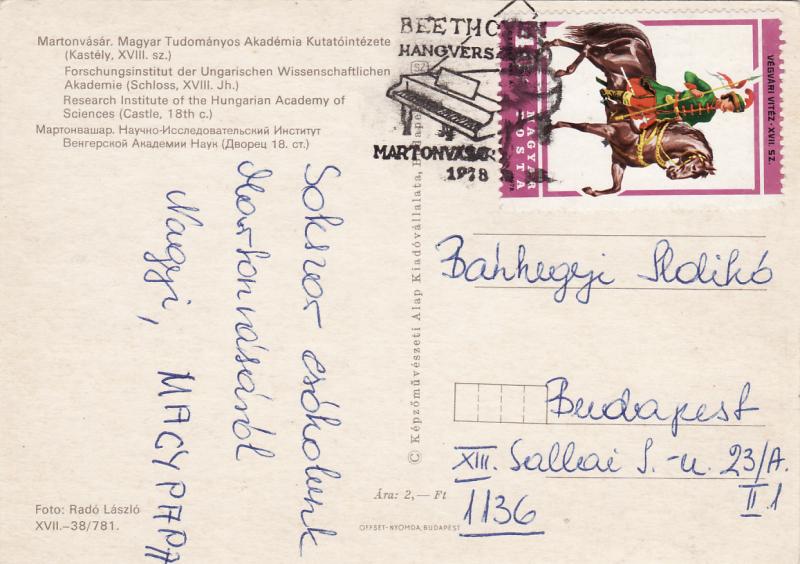 Martonvásár. Magyar Tudományos Akadémia Kutatóintézete
(Kastély, XVIII. sz.)
Forschungsinstitut der Ungarischen Wissenschaftlichen
Akademie (Schloss, XVIII. Jh.)
Research Institute of the Hungarian Academy of
Sciences (Castle, 18th c.)
Мартонвашар. Научно-Исследовательский Институт
Венгерской Академии Наук (Дворец 18. ст.)
Sokszor csókolunk
Martonvásáról
Nagyi, MAGYPAPA
Foto: Radó László
XVII.–38/781.
Ára: 2,— Ft
OFFSET-NYOMDA, BUDAPEST
© Képzőművészeti Alap Kiadóvállalata, Budapest
BEETHO
HANGVERS
MARTONVÁSÁR
1978
MAGYAR
POSTA
VÉGVÁRI VITÉZ·XVII. SZ.
Bánhegyi Ildikó
Budapest
XIII. Sallai I.-u. 23/A.
II. 1
1136